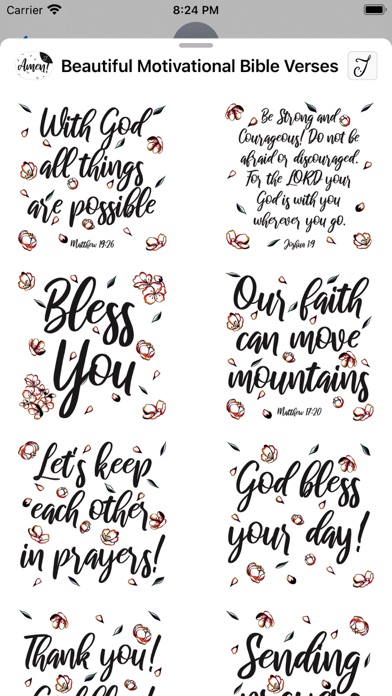 Carrier 8:24 PM
Amen! Beautiful Motivational Bible Verses J
With God
all things
are possible
Matthew 19:26
Be Strong and
Courageous! Do not be
afraid or discouraged.
For the LORD your
God is with you
wherever you go.
Joshua 1:9
Bless
You
Our faith
can move
mountains
Matthew 17:20
Let's keep
each other
in prayers!
God bless
your day!
Thank you!
Sending